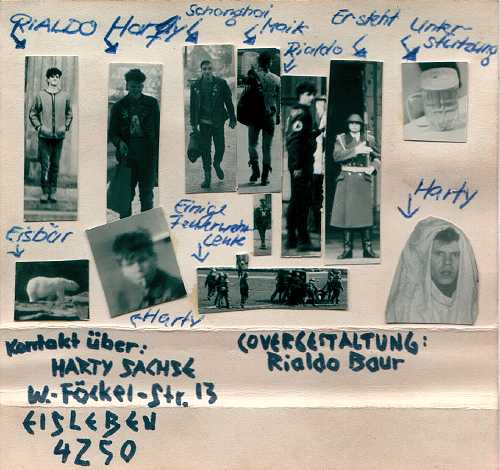 RIALDO
Harty
Schonghoi
Maik
Rialdo
Er steht
Unter-
stützung
Eisbär
Einige
Feuerwehr
Leute
Harty
Harty
Kontakt über:
HARTY SACHSE
W.-Föckel-Str. 13
EISLEBEN
4250
COVERGESTALTUNG:
Rialdo Baur